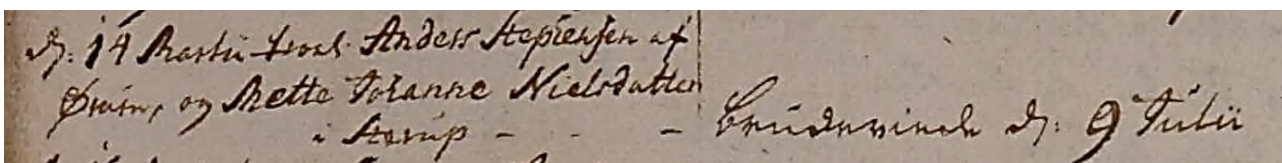 d: 14 Martii trol. Anders Stephensen af
Ørum, og Mette Johanne Nielsdatter
i Sterup - - -
Brudeviede d: 9 Julii